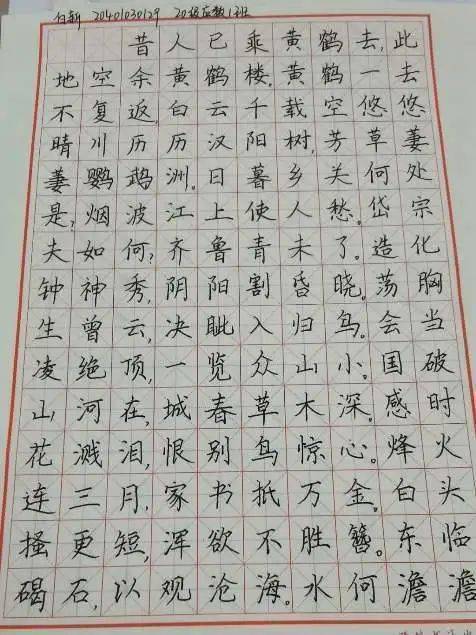 白新 20401030129 20级应数1班
昔人已乘黄鹤去,此
地空余黄鹤楼。黄鹤一去
不复返,白云千载空悠悠
晴川历历汉阳树,芳草萋
萋鹦鹉洲。日暮乡关何处
是?烟波江上使人愁。岱宗
夫如何?齐鲁青未了。造化
钟神秀,阴阳割昏晓。荡胸
生曾云,决眦入归鸟。会当
凌绝顶,一览众山小。国破
山河在,城春草木深。感时
花溅泪,恨别鸟惊心。烽火
连三月,家书抵万金。白头
搔更短,浑欲不胜簪。东临
碣石,以观沧海。水何澹澹